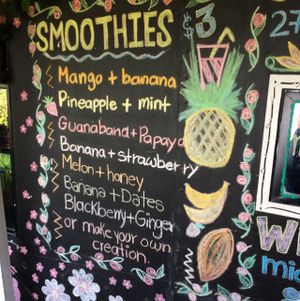 SMOOTHIES
$3
Mango + banana
Pineapple + mint
Guanaband + Papaya
Banana + strawberry
Melon + honey
Banana + Dates
Blackberry + Ginger
or make your own
creation.